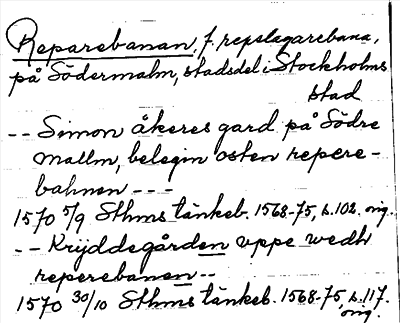 Reparebanan, f. repslagarebana,
på Södermalm, stadsdel i Stockholms
stad
-- Simon åkeres gard på Södre
mallm, belegin osten repere-
bahnen ---
1570 5/9 Sthms tänkeb. 1568-75, s. 102. orig.
-- Krÿddegården uppe wedh
reperebanen --
1570 30/10 Sthms tänkeb. 1568-75, s. 117.
orig.